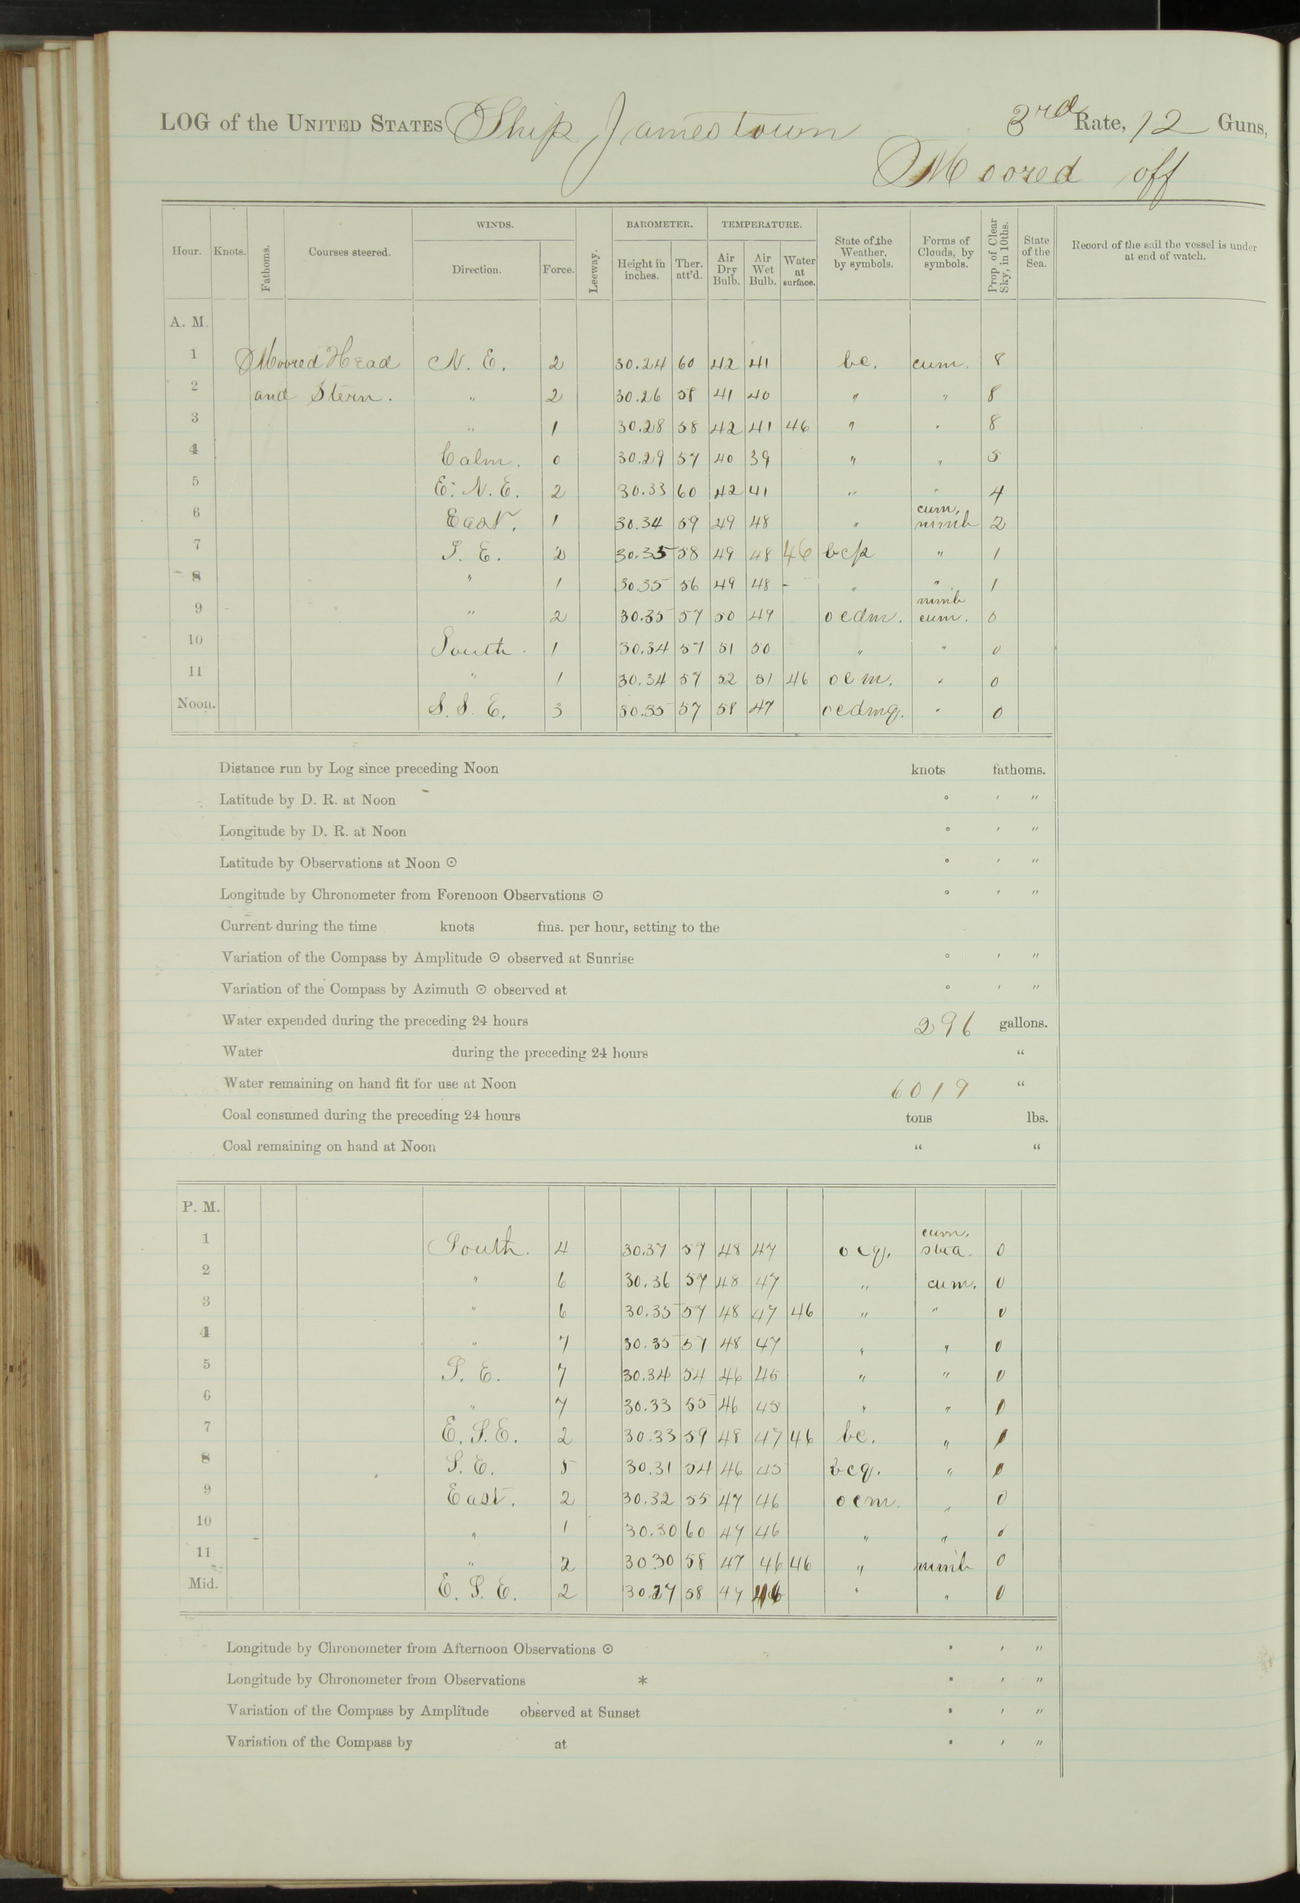 LOG of the UNITED STATES Ship Jamestown 3rd Rate, 12 Guns,
Moored off
Hour. Knots. Fathoms. Courses steered. WINDS. Direction. Force. Leeway. BAROMETER. Height in inches. Ther. att'd. TEMPERATURE. Air Dry Bulb. Air Wet Bulb. Water at surface. State of the Weather, by symbols. Forms of Clouds, by symbols. Prop. of Clear Sky, in 10ths. State of the Sea. Record of the sail the vessel is under at end of watch.
A. M.
1 Moored Head N. E. 2 30.24 60 42 41 bc. cum. 8
2 and Stern. " 2 30.26 58 41 40 " " 8
3 " 1 30.28 58 42 41 46 " " 8
4 Calm. 0 30.29 57 40 39 " " 5
5 E. N. E. 2 30.33 60 42 41 " " 4
6 East. 1 30.34 59 49 48 " cum. nimb 2
7 S. E. 2 30.35 58 49 48 46 bcp " 1
8 " 1 30.35 56 49 48 - " " 1
9 " 2 30.35 57 50 49 ocdm. nimb cum. 0
10 South. 1 30.34 57 51 50 " " 0
11 " 1 30.34 57 52 51 46 ocm. " 0
Noon. S. S. E. 3 30.35 57 58 47 ocdmq. " 0
Distance run by Log since preceding Noon knots fathoms.
Latitude by D. R. at Noon ° ′ ″
Longitude by D. R. at Noon ° ′ ″
Latitude by Observations at Noon ⊙ ° ′ ″
Longitude by Chronometer from Forenoon Observations ⊙ ° ′ ″
Current during the time knots fms. per hour, setting to the
Variation of the Compass by Amplitude ⊙ observed at Sunrise ° ′ ″
Variation of the Compass by Azimuth ⊙ observed at ° ′ ″
Water expended during the preceding 24 hours 296 gallons.
Water during the preceding 24 hours "
Water remaining on hand fit for use at Noon 6019 "
Coal consumed during the preceding 24 hours tons lbs.
Coal remaining on hand at Noon " "
P. M.
1 South. 4 30.37 57 48 47 ocq. cum. stra. 0
2 " 6 30.36 57 48 47 " cum. 0
3 " 6 30.35 57 48 47 46 " " 0
4 " 7 30.35 57 48 47 " " 0
5 S. E. 7 30.34 54 46 45 " " 0
6 " 7 30.33 55 46 45 " "
7 E. S. E. 2 30.33 59 48 47 46 bc. "
8 S. E. 5 30.31 54 46 45 bcq. "
9 East. 2 30.32 55 47 46 ocm. " 0
10 " 1 30.30 60 47 46 " " 0
11 " 2 30 30 58 47 46 46 " nimb 0
Mid. E. S. E. 2 30.27 58 47 46 " " 0
Longitude by Chronometer from Afternoon Observations ⊙ ° ′ ″
Longitude by Chronometer from Observations * ° ′ ″
Variation of the Compass by Amplitude observed at Sunset ° ′ ″
Variation of the Compass by at ° ′ ″